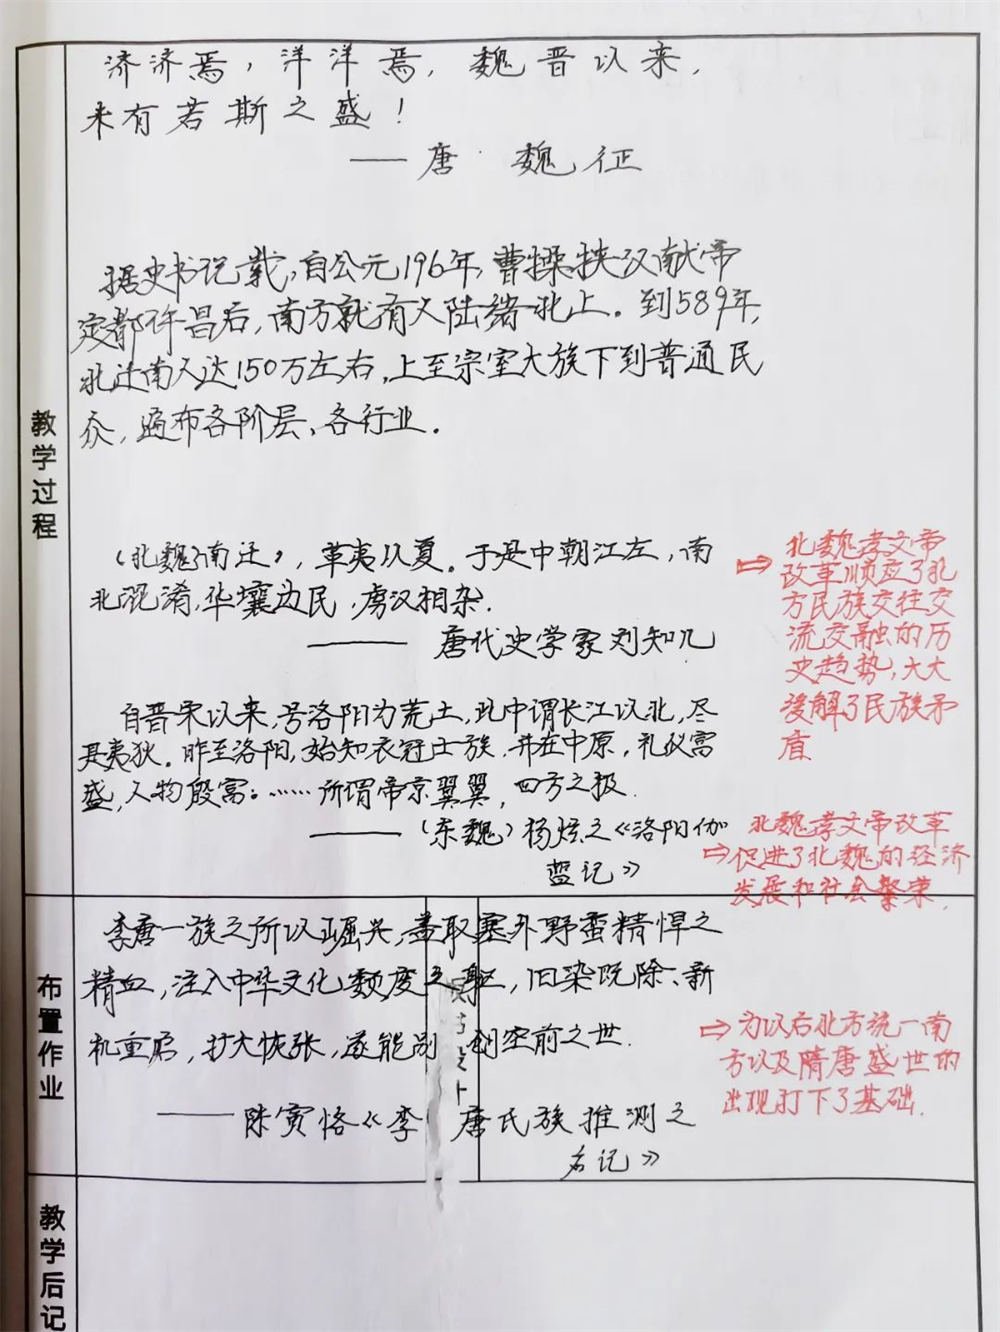 济济焉，洋洋焉，魏晋以来，
未有若斯之盛！
——唐·魏征
据史书记载，自公元196年，曹操挟汉献帝
定都许昌后，南方就有人陆续北上。到589年，
北迁南人达150万左右，上至宗室大族下到普通民
众，遍布各阶层、各行业。
教学过程
（北魏南迁），革夷从夏。于是中朝江左，南
北混淆，华壤边民，虏汉相杂.
——唐代史学家刘知几
⇒北魏孝文帝
改革顺应了北
方民族交往交
流交融的历
史趋势，大大
缓解了民族矛
盾
自晋宋以来，号洛阳为荒土，此中谓长江以北，尽
是夷狄。昨至洛阳，始知衣冠士族，并在中原，礼仪富
盛，人物殷富：……所谓帝京翼翼，四方之极.
——（东魏）杨炫之《洛阳伽
蓝记》
北魏孝文帝改革
⇒促进了北魏的经济
发展和社会繁荣.
布置作业
李唐一族之所以崛兴，盖取塞外野蛮精悍之
精血，注入中华文化颓废之躯，旧染既除、新
机重启，扩大恢张，遂能别创空前之世.
——陈寅恪《李唐氏族推测之
后记》
⇒为以后北方统一南
方以及隋唐盛世的
出现打下了基础.
教学后记